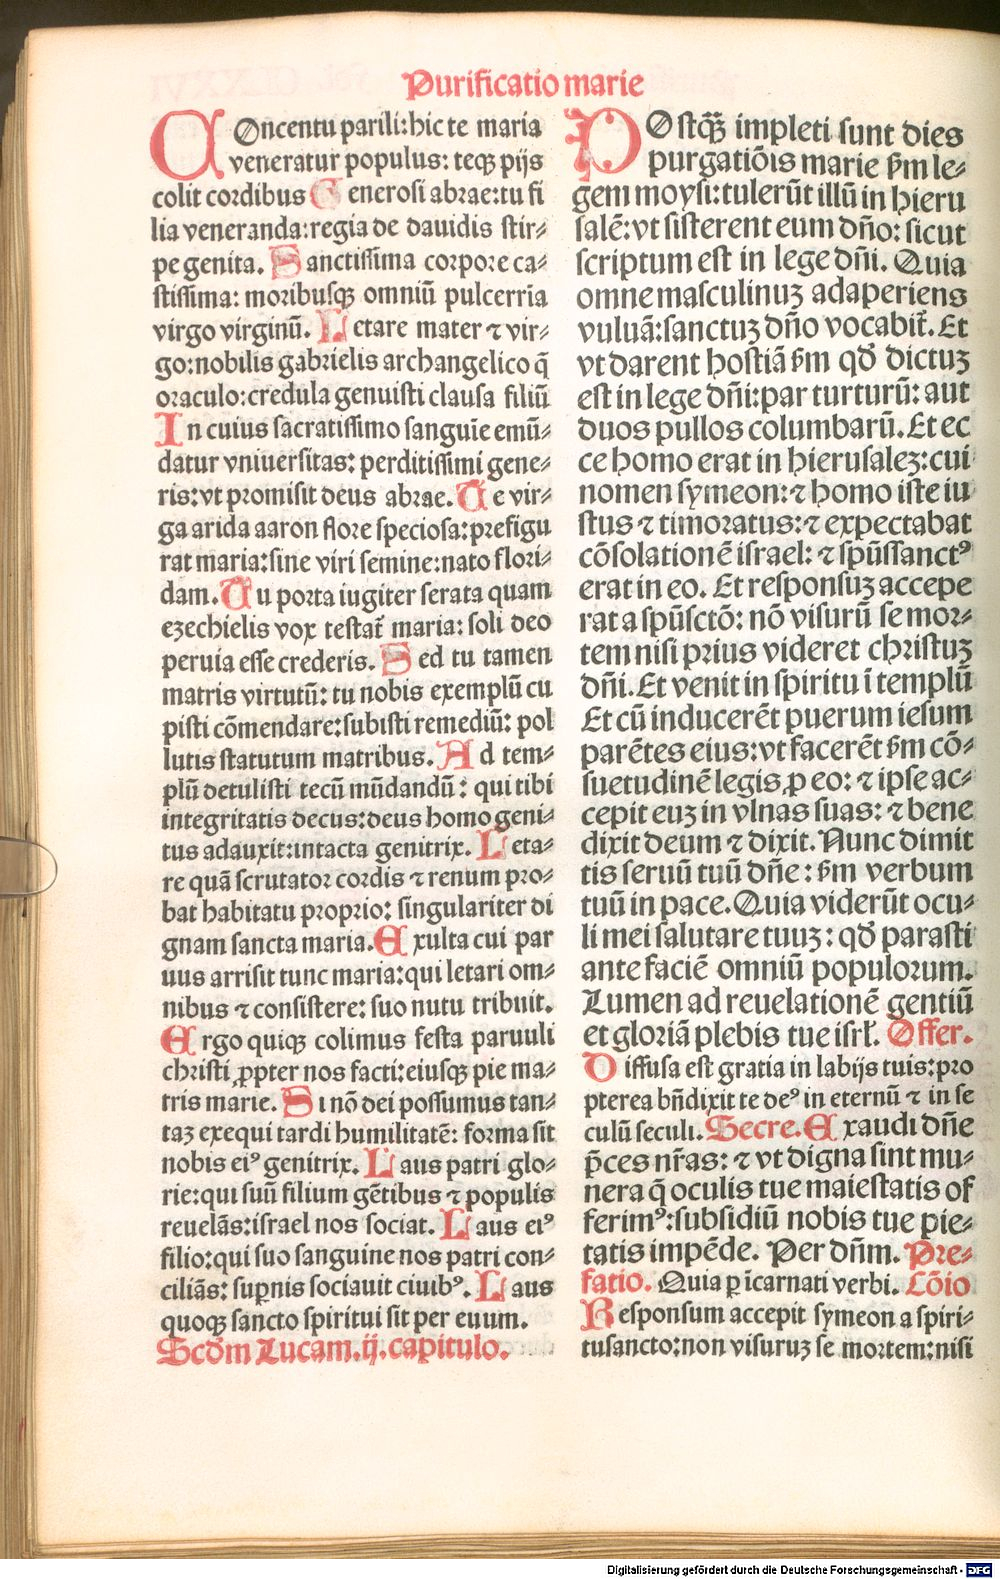 Purificatio marie
COncentu parili:hic te maria
veneratur populus: teqꝫ pijs
colit cordibus Generosi abrae:tu fi
lia veneranda:regia de dauidis stir⸗
pe genita. Sanctissima corpore ca⸗
stissima: moribusqꝫ omniū pulcerria
virgo virginū. Letare mater ⁊ vir⸗
go:nobilis gabrielis archangelico q̄
oraculo:credula genuisti clausa filiū
In cuius sacratissimo sanguīe emū⸗
datur vniuersitas: perditissimi gene⸗
ris:vt promisit deus abrae. Te vir⸗
ga arida aaron flore speciosa:prefigu
rat maria:sine viri semine:nato flori⸗
dam. Tu porta iugiter serata quam
ezechielis vox testat̄ maria: soli deo
peruia esse crederis. Sed tu tamen
matris virtutū: tu nobis exemplū cu
pisti cōmendare:subisti remediū: pol
lutis statutum matribus. Ad tem⸗
plū detulisti tecū mūdandū: qui tibi
integritatis decus:deus homo geni⸗
tus adauxit:intacta genitrix. Leta⸗
re quā scrutator cordis ⁊ renum pro⸗
bat habitatu proprio: singulariter di
gnam sancta maria. Exulta cui par
uus arrisit tunc maria:qui letari om⸗
nibus ⁊ consistere: suo nutu tribuit.
Ergo quiqꝫ colimus festa paruuli
christi ꝓpter nos facti:eiusqꝫ pie ma⸗
tris marie. Si nō dei possumus tan⸗
taꝫ exequi tardi humilitatē: forma sit
nobis eiꝰ genitrix. Laus patri glo⸗
rie:qui suū filium gētibus ⁊ populis
reuelās:israel nos sociat. Laus eiꝰ
filio:qui suo sanguine nos patri con⸗
ciliās: sup̄nis sociauit ciuibꝰ. Laus
quoqꝫ sancto spiritui sit per euum.
Scd̄m Lucam.ij.capitulo.
POstq̄ꝫ impleti sunt dies
purgatiōis marie ẜm le⸗
gem moysi:tulerūt illū in hieru
salē:vt sisterent eum dn̄o: sicut
scriptum est in lege dn̄i. Quia
omne masculinuꝫ adaperiens
vuluā:sanctuꝫ dn̄o vocabit̄. Et
vt darent hostiā ẜm qd̄ dictuꝫ
est in lege dn̄i:par turturū: aut
duos pullos columbarū. Et ec
ce homo erat in hierusalez:cui
nomen symeon:⁊ homo iste iu
stus ⁊ timoratus:⁊ expectabat
cōsolationē israel: ⁊ spūssanctꝰ
erat in eo. Et responsuꝫ accepe
rat a spūsctō: nō visurū se mor⸗
tem nisi prius videret christuꝫ
dn̄i. Et venit in spiritu ī templū
Et cū inducerēt puerum iesum
parētes eius:vt facerēt ẜm cō⸗
suetudinē legis ꝓ eo: ⁊ ipse ac⸗
cepit euꝫ in vlnas suas: ⁊ bene
dixit deum ⁊ dixit. Nunc dimit
tis seruū tuū dn̄e: ẜm verbum
tuū in pace. Quia viderūt ocu⸗
li mei salutare tuuꝫ: qd̄ parasti
ante faciē omniū populorum.
Lumen ad reuelationē gentiū
et gloriā plebis tue isrł. Offer.
Diffusa est gratia in labijs tuis:pro
pterea bn̄dixit te deꝰ in eternū ⁊ in se
culū seculi. Secre. Exaudi dn̄e
p̄ces nr̄as: ⁊ vt digna sint mu⸗
nera q̄ oculis tue maiestatis of
ferimꝰ:subsidiū nobis tue pie⸗
tatis impēde. Per dn̄m. Pre⸗
fatio. Quia ꝑ īcarnati verbi. Cōio
Responsum accepit symeon a spiri⸗
tusancto:non visuruꝫ se mortem:nisi
Digitalisierung gefördert durch die Deutsche Forschungsgemeinschaft - DFG